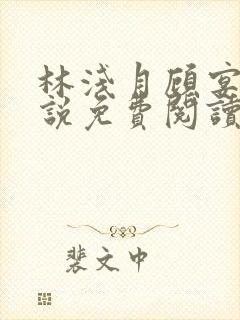 林淺月顧宴
說免費閱讀
裴文中